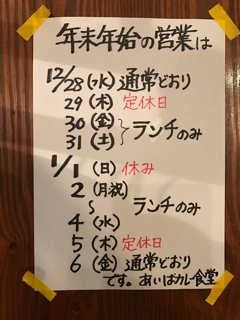 年末年始の営業は
12/28(水) 通常どおり
29(木) 定休日
30(金)
31(土) } ランチのみ
1/1(日) 休み
2(月祝)
〜 ランチのみ
4(水)
5(木) 定休日
6(金) 通常どおり
です。あいばカレー食堂